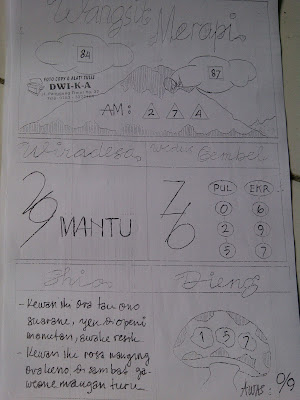 Wangsit
Merapi
84
87
FOTO COPY & ALAT TULIS
DWI-K-A
AM: 2 7 4
Wiradesa
Wedus Gembel
29 MANTU
76
PUL EKR
0 6
2 9
5 7
Shio
Dieng
- Kewan iku ora tau ono
suarane, yen di openi
manutan, awake resik
- Kewan iku rosa nanging
di sambat ga-
weane mangan turu
1 5 7
AWAS: 9/9